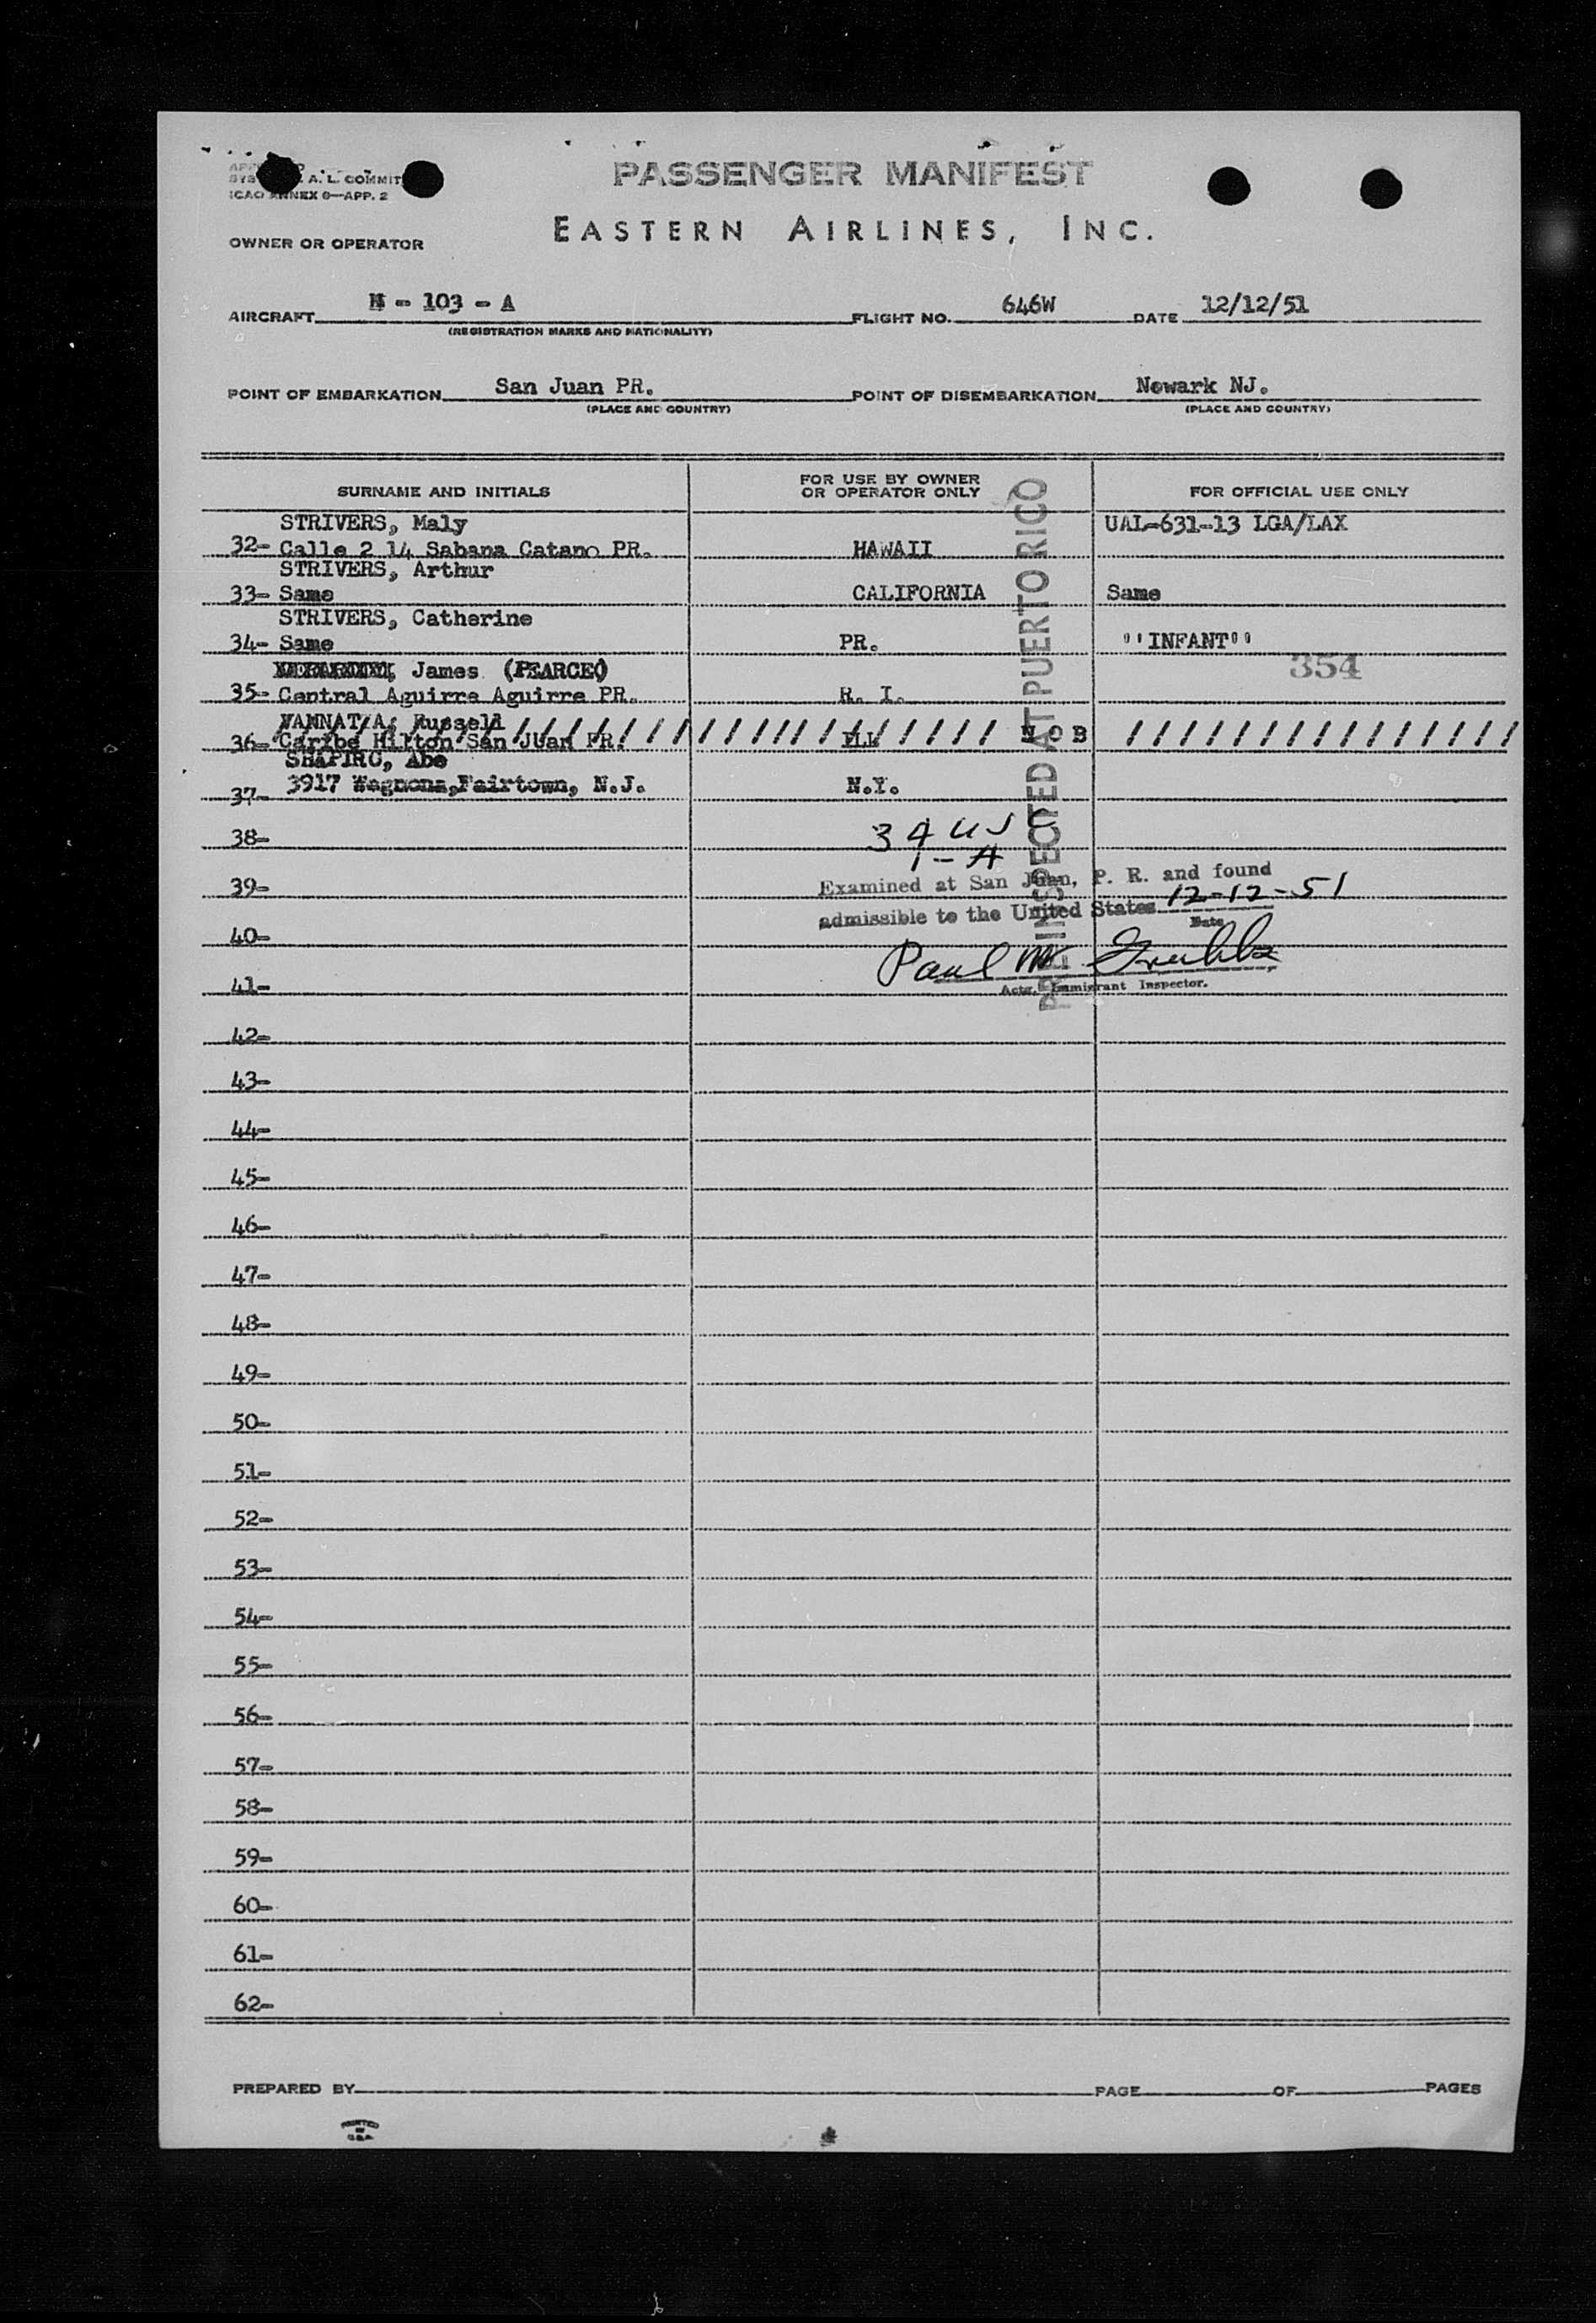 PASSENGER MANIFEST
A. L. COMMIT
ICAO ANNEX 8—APP. 2
EASTERN AIRLINES, INC.
OWNER OR OPERATOR
AIRCRAFT N - 103 - A FLIGHT NO. 646W DATE 12/12/51
(REGISTRATION MARKS AND NATIONALITY)
POINT OF EMBARKATION San Juan PR. POINT OF DISEMBARKATION Newark NJ.
(PLACE AND COUNTRY) (PLACE AND COUNTRY)
SURNAME AND INITIALS FOR USE BY OWNER OR OPERATOR ONLY FOR OFFICIAL USE ONLY
STRIVERS, Maly UAL-631-13 LGA/LAX
32- Calle 2 14 Sabana Catano PR. HAWAII
STRIVERS, Arthur
33- Same CALIFORNIA Same
STRIVERS, Catherine
34- Same PR. ''INFANT''
354
James (PEARCE)
35- Central Aguirre Aguirre PR. R. I.
VANNATTA, Russell
36- Caribe Hilton San Juan PR. ILL N O B
SHAPIRO, Abe
37- 3917 Wagnons, Fairtown, N.J. N.Y.
38- 34 USC
1-A
39- Examined at San Juan, P. R. and found
admissible to the United States 12-12-51
Date
40-
Paul M
41- Actg. Immigrant Inspector.
PREINSPECTED AT PUERTO RICO
42-
43-
44-
45-
46-
47-
48-
49-
50-
51-
52-
53-
54-
55-
56-
57-
58-
59-
60-
61-
62-
PREPARED BY PAGE OF PAGES
PRINTED
IN
U.S.A.